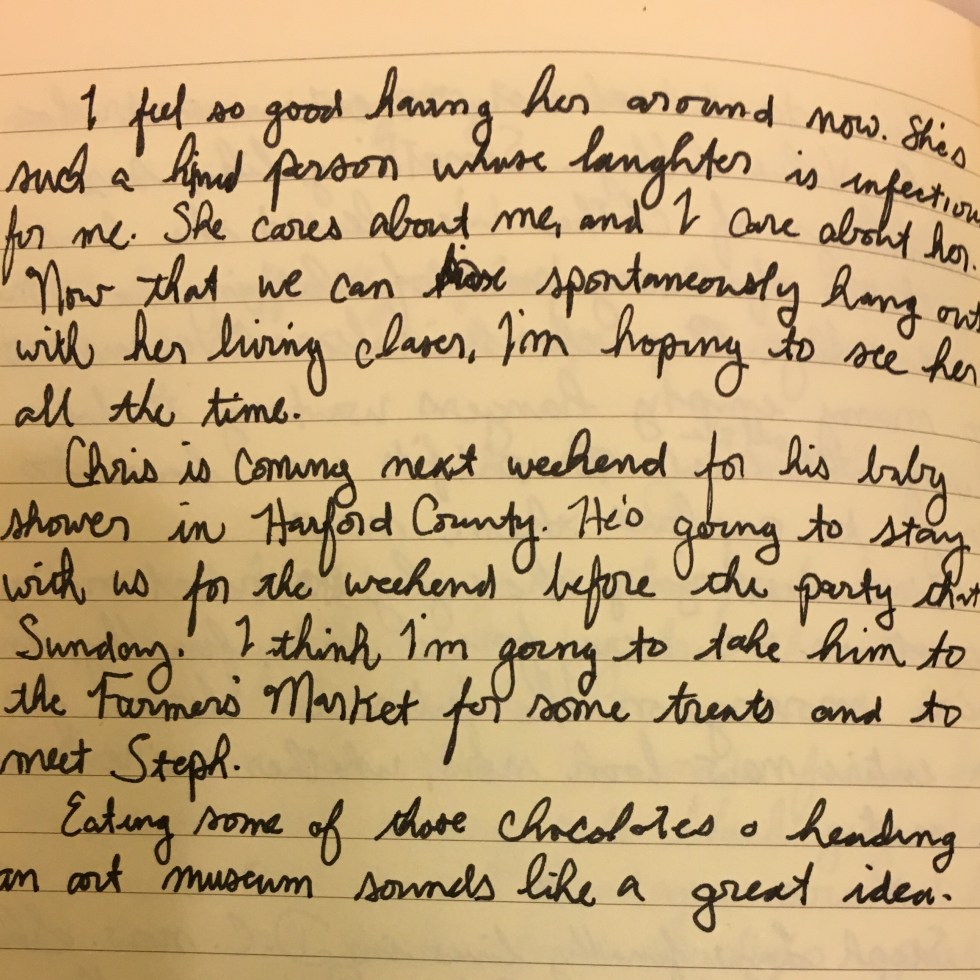 I feel so good having her around now. She's
such a kind person whose laughter is infectious
for me. She cares about me, and I care about her.
Now that we can spontaneously hang out
with her living closer, I'm hoping to see her
all the time.
Chris is coming next weekend for his baby
shower in Harford County. He's going to stay
with us for the weekend before the party that
Sunday. I think I'm going to take him to
the Farmers' Market for some treats and to
meet Steph.
Eating some of those chocolates & heading
an art museum sounds like a great idea.